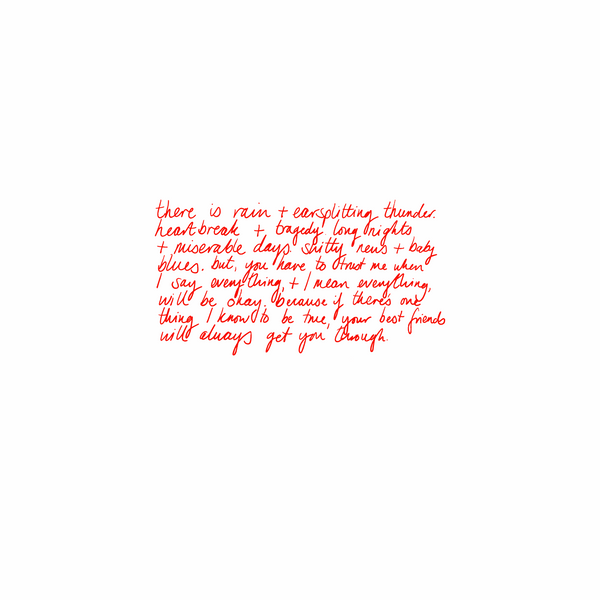 there is rain + earsplitting thunder.
heartbreak + tragedy long nights
+ miserable days. shitty news + baby
blues. but, you have to trust me when
I say everything, + I mean everything,
will be okay. because if there's one
thing I know to be true, your best friends
will always get you through.